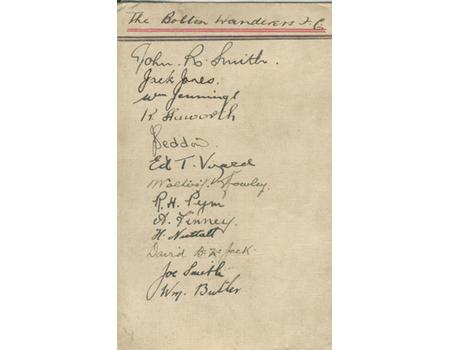 The Bolton Wanderers F.C
John. R. Smith.
Jack Jones.
Wm Jennings
R. Haworth
Seddon.
Ed T. Vizard
Walter Rowley
R. H. Pym
A. Finney.
H. Nuttall
David B. N. Jack.
Joe Smith
Wm. Butler